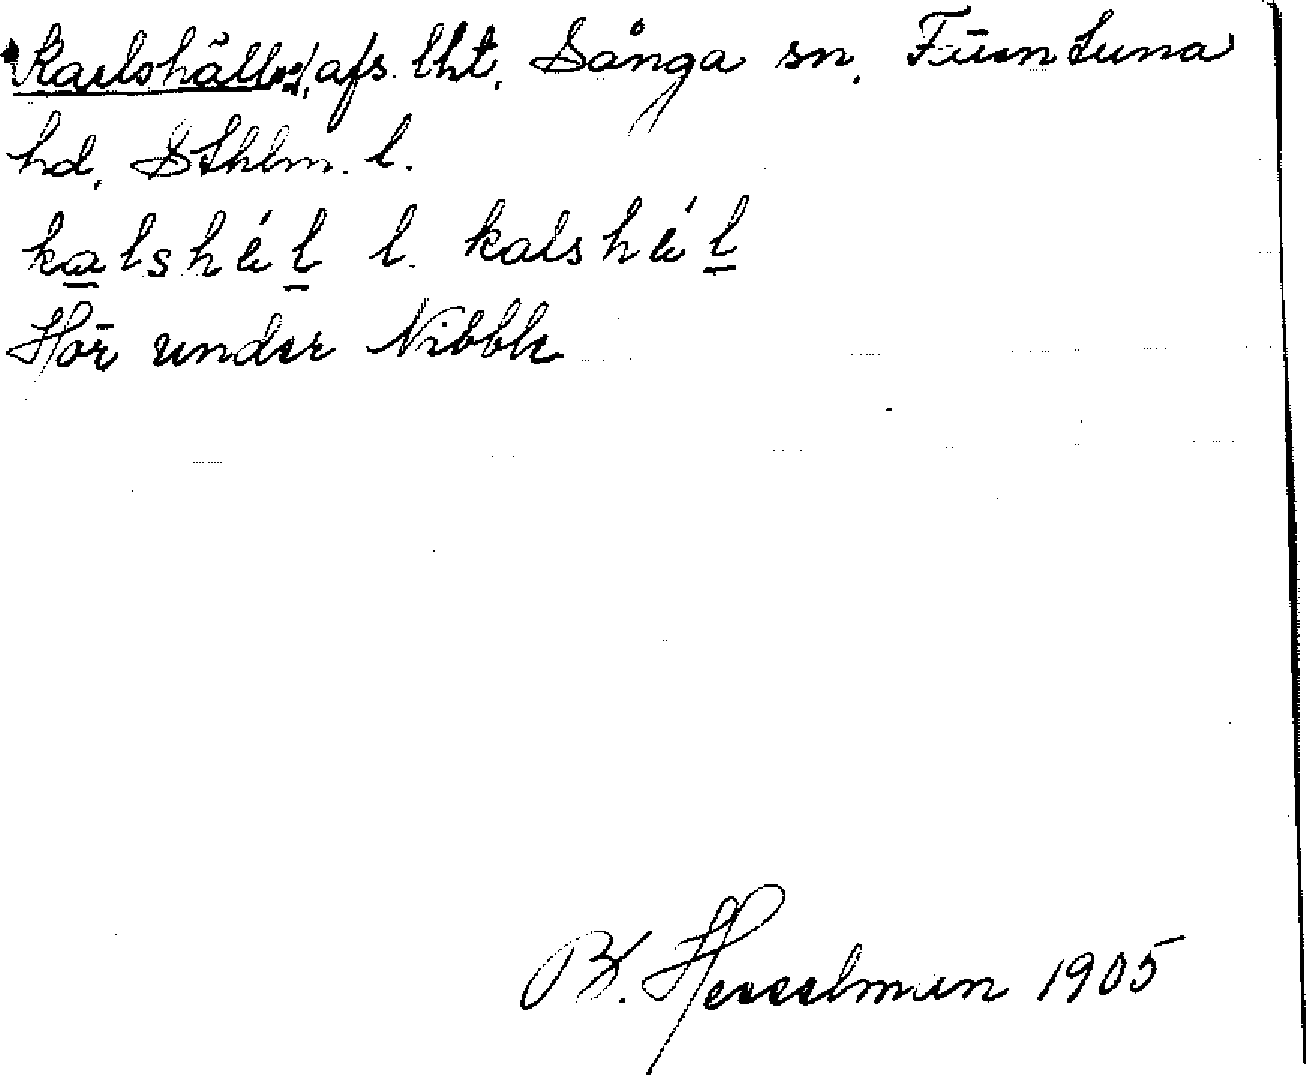 Karlshäll, afs. lht, Sånga sn, Färentuna
hd, Sthlm. l.
kalshä́l l. kalshä́l
Hör under Nibble
B. Hesselman 1905